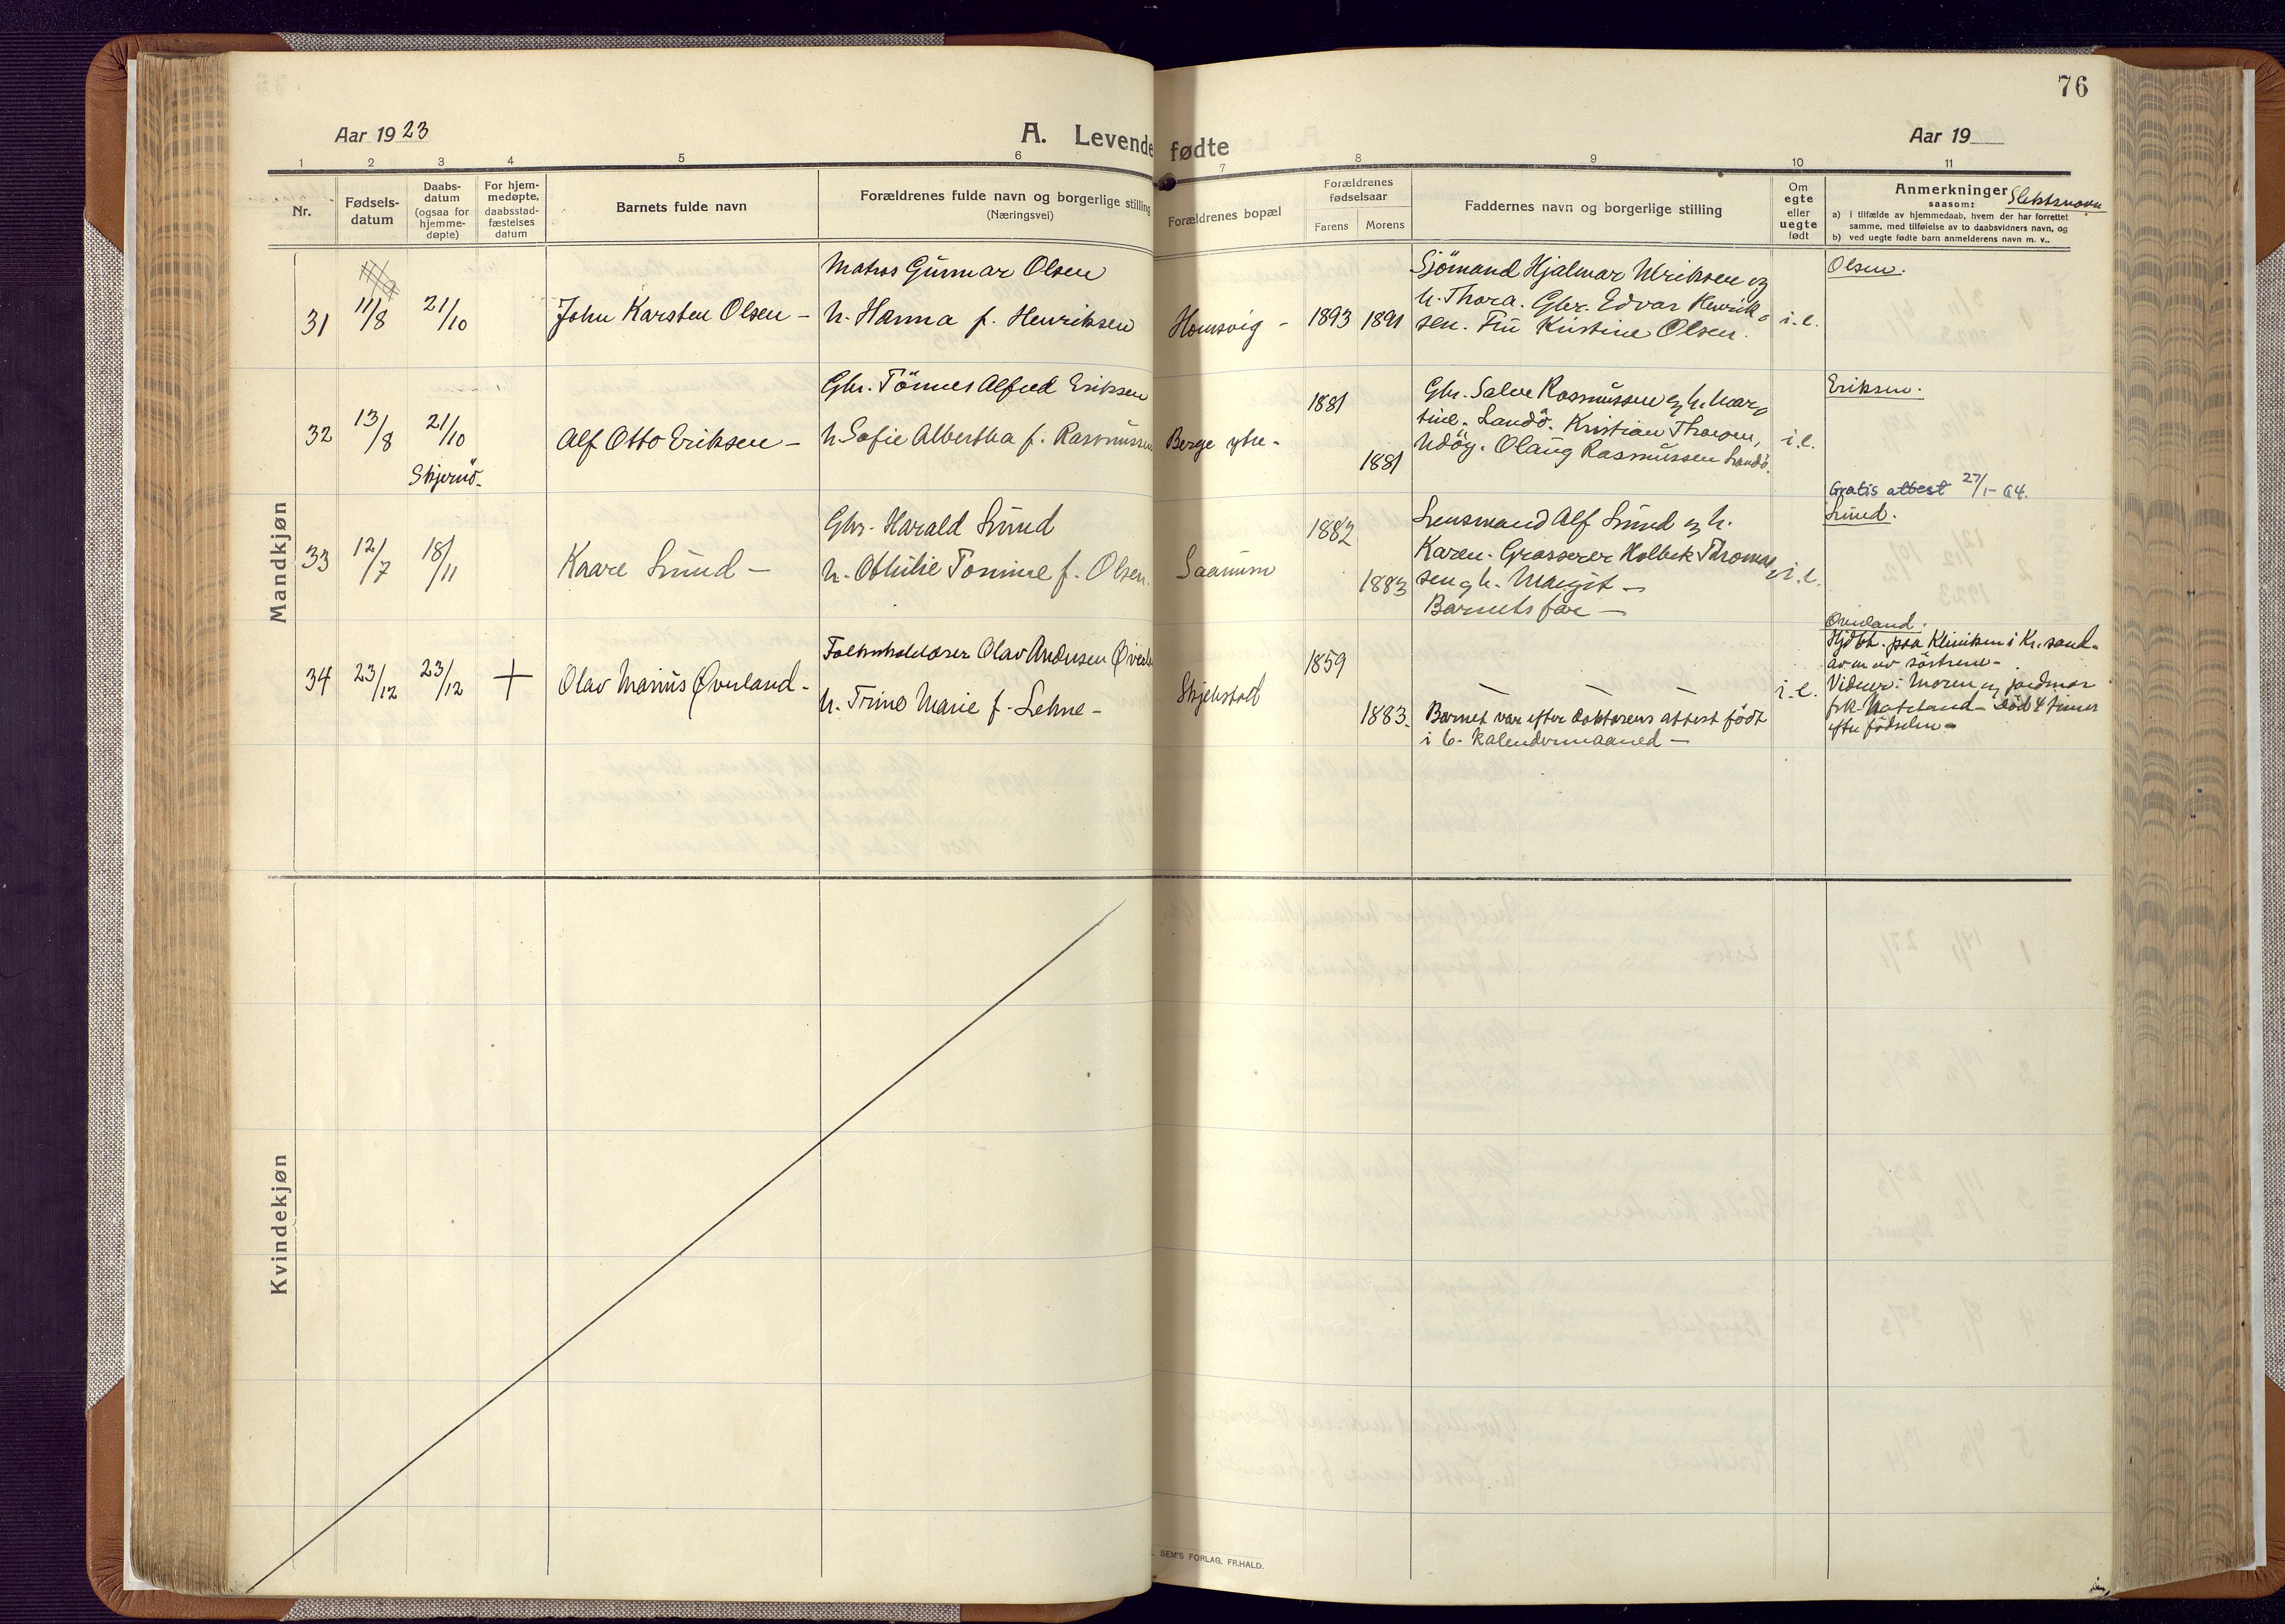 76
Aar 1923
A. Levende fødte
Aar 19
1 2 3 4 5 6 7 8 9 10 11
Nr.
Fødsels-
datum
Daabs-
datum
(ogsaa for
hjemme-
døpte)
For hjem-
medøpte,
daabsstad-
fæstelses
datum
Barnets fulde navn
Forældrenes fulde navn og borgerlige stilling
(Næringsvei)
Forældrenes bopæl
Forældrenes
fødselsaar
Farens Morens
Faddernes navn og borgerlige stilling
Om
egte
eller
uegte
født
Anmerkninger Slektsnavn
saasom:
a) i tilfælde av hjemmedaab, hvem der har forrettet
samme, med tilføielse av to daabsvidners navn, og
b) ved uegte fødte barn anmelderens navn m. v..
Mandkjøn
31
11/8
21/10
John Karsten Olsen -
Matros Gunnar Olsen
h. Hanna f. Henriksen
Homsvig -
1893 1891
Sjömand Hjalmar Ulriksen og
h. Thora. Gbr. Edvar Henrik-
sen. Fru Kristine Olsen.
i.e.
Olsen.
32
13/8
21/10
Skjernö.
Alf Otto Eriksen -
Gbr. Tönnes Alfred Eriksen
h. Sofie Albertha f. Rasmussen
Berge ytre -
1881
1881
Gbr. Salve Rasmussen og h. Mar-
tine. Landö. Kristian Thorsen,
Udöy. Olaug Rasmussen Landö.
i.e.
Eriksen.
33
12/7
18/11
Kaare Lund -
Gbr. Harald Lund
h. Othilie Tomine f. Olsen.
Saanum
1882
1883
Lensmand Alf Lund og h.
Karen. Grosserer Holbek Thomas-
sen og h. Margit -
Barnets far -
i.e.
Gratis attest 27/1-64.
Lund.
34
23/12
23/12
+
Olav Marius Øverland -
Olav Andersen Øverl
h. Trine Marie f. Lehne -
Skjebstad
1859
1883.
- - -
Barnet var efter doktorens attest født
i 6. kalendermaaned -
i.e.
Øverland.
Hjdbt. paa Kliniken i Kr.sand.
av en av söstrene -
Vidner: Moren og jordmor
frk. Hateland - död 4 timer
efter fødselen -
Kvindekjøn
SEM'S FORLAG, FR.HALD.